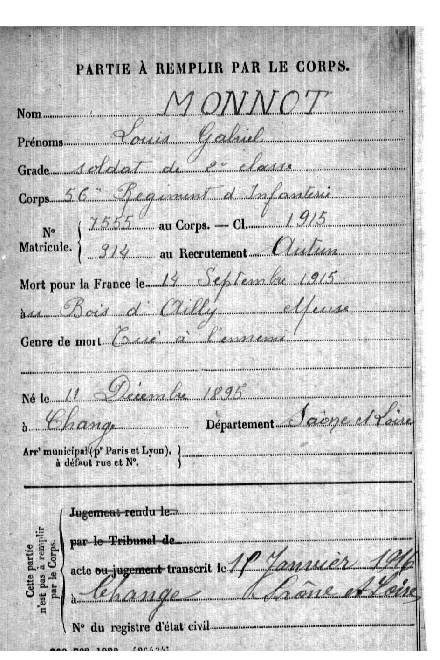 PARTIE À REMPLIR PAR LE CORPS.
Nom MONNOT
Prénoms Louis Gabriel
Grade soldat de 2e classe
Corps 56e Régiment d'Infanterie
N° Matricule. { 7555 au Corps. — Cl. 1915
314 au Recrutement Autun
Mort pour la France le 14 Septembre 1915
à au Bois d'Ailly Meuse
Genre de mort Tué à l'ennemi
Né le 11 Décembre 1895
à Change Département Saône et Loire
Arrt municipal (pr Paris et Lyon),
à défaut rue et N°.
Cette partie n'est pas à remplir par le Corps.
Jugement rendu le
par le Tribunal de
acte ou jugement transcrit le Janvier 1916
à Change Saône et Loire
N° du registre d'état civil